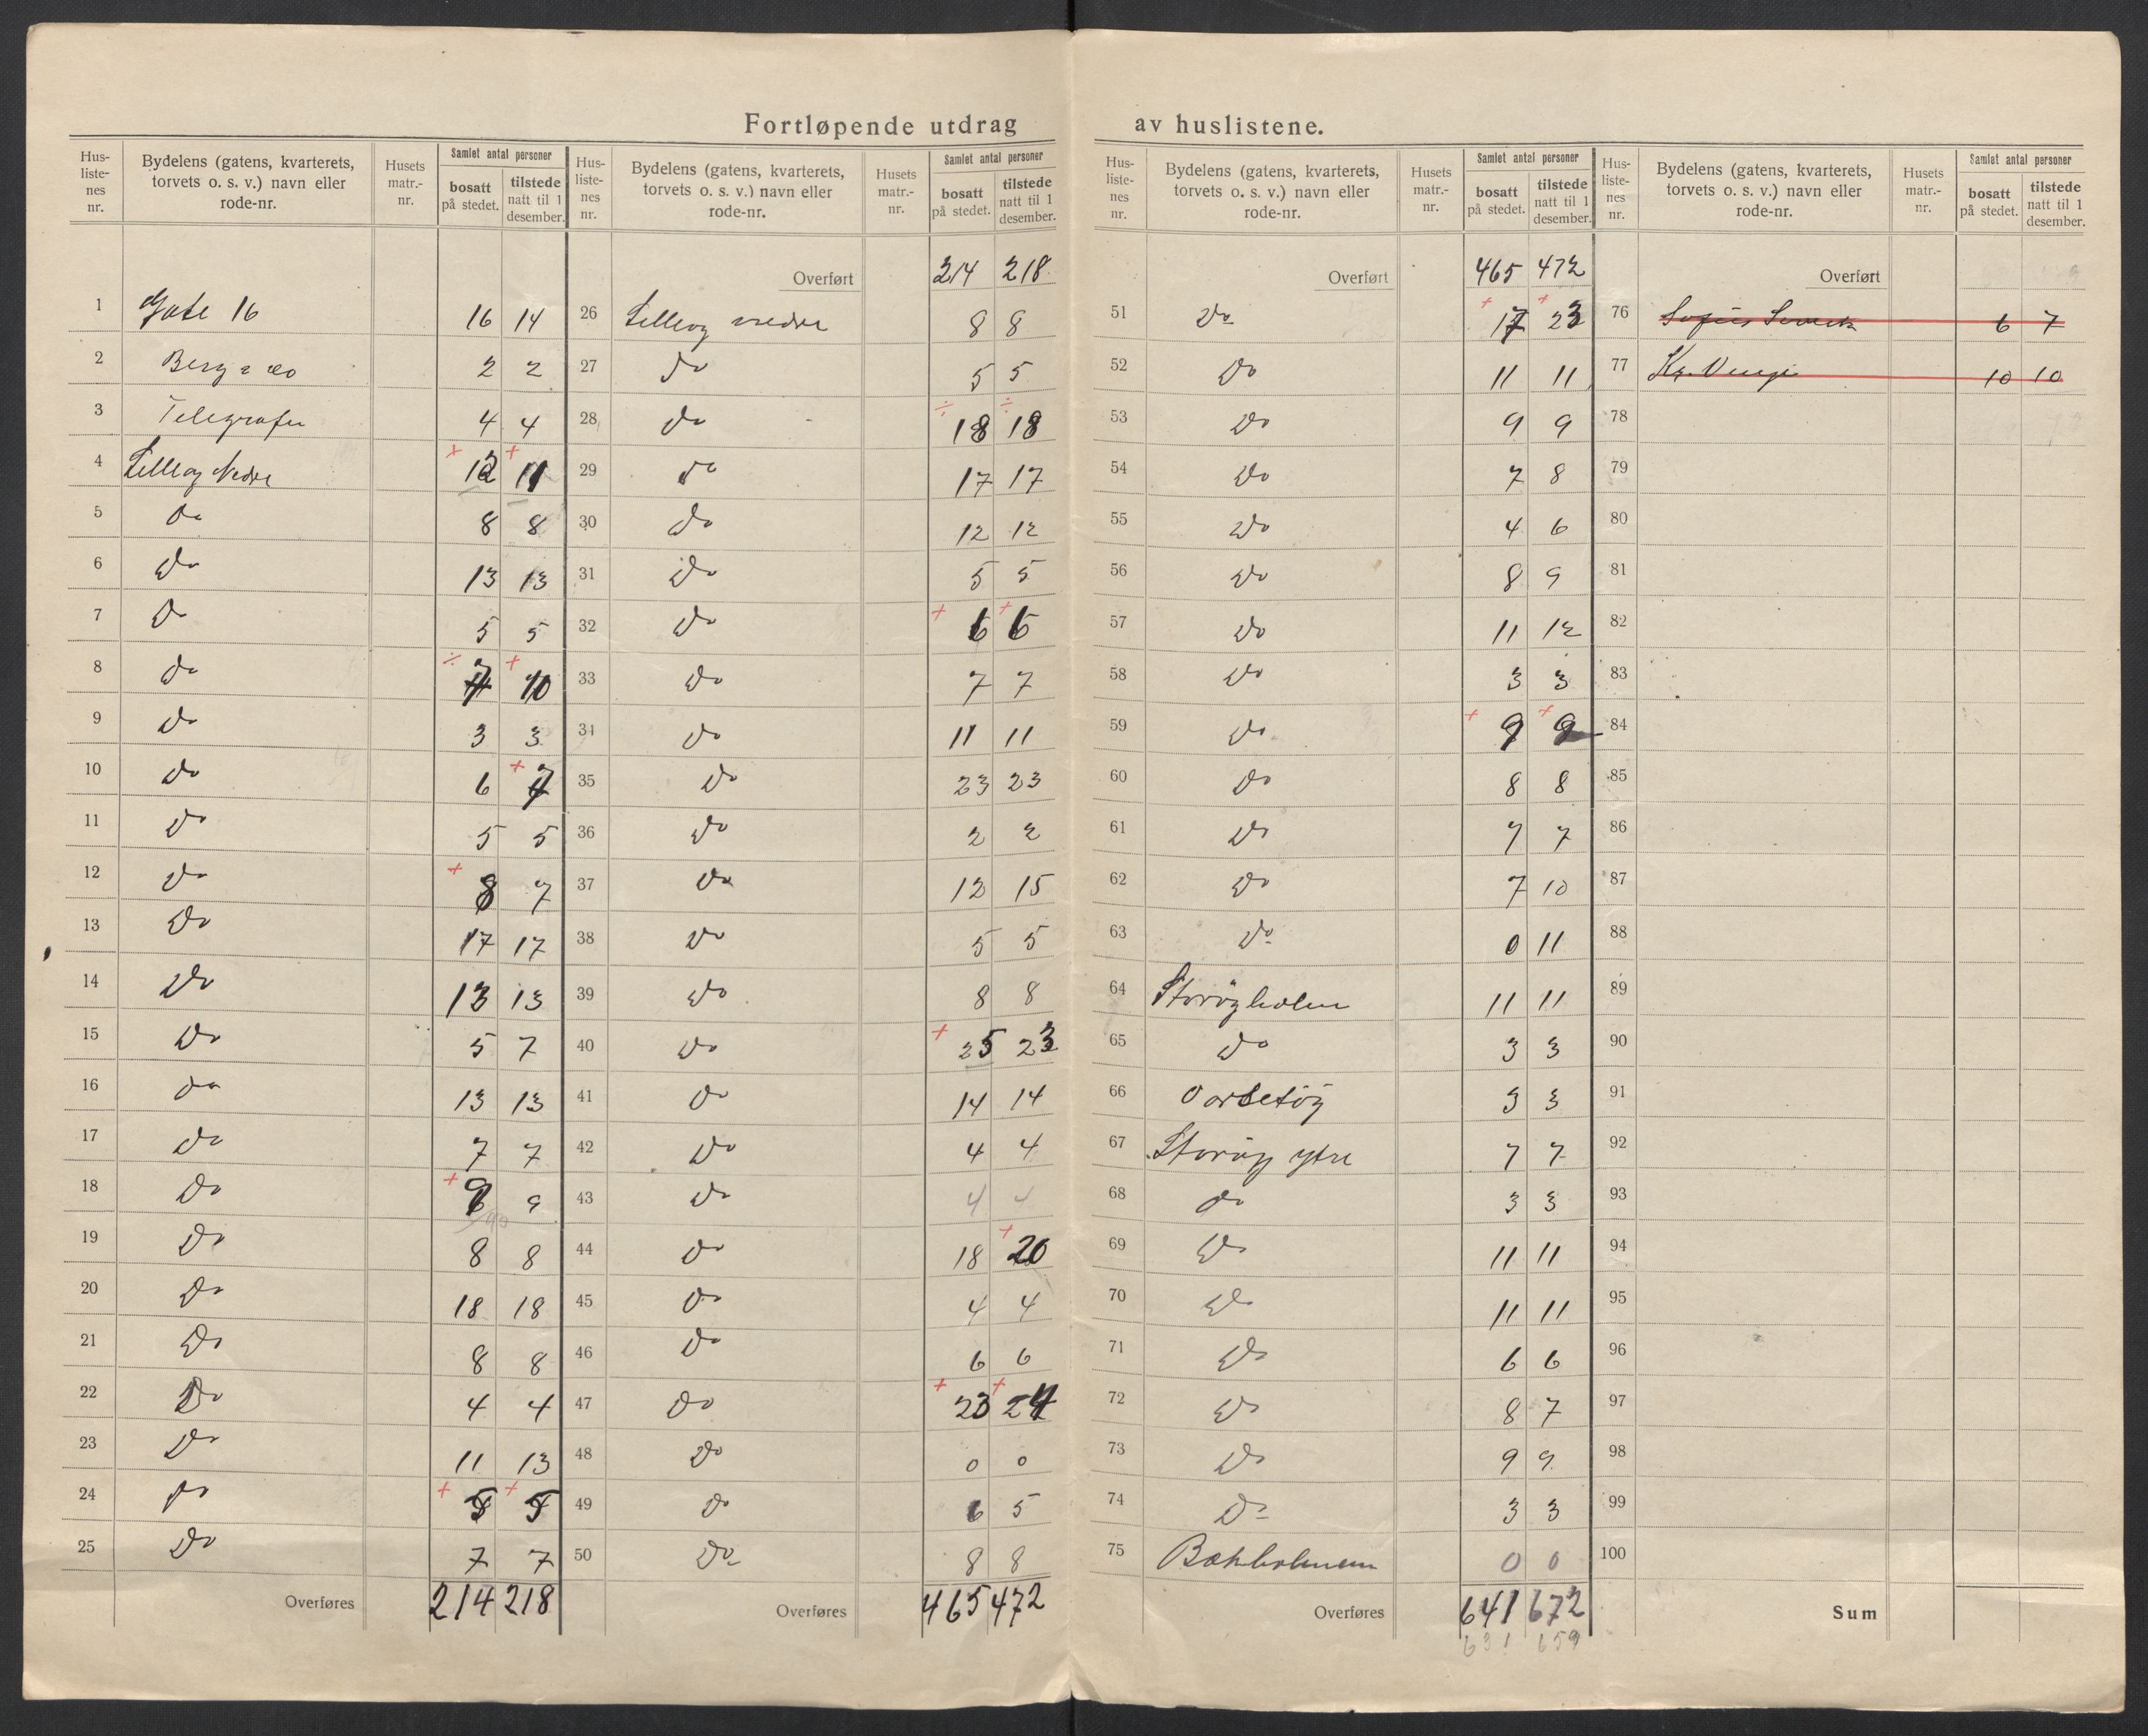 Fortløpende utdrag av huslistene.
Hus-listenes nr. Bydelens (gatens, kvarterets, torvets o. s. v.) navn eller rode-nr. Husets matr.-nr. Samlet antal personer bosatt på stedet. tilstede natt til 1 desember.
1 Gate 16 16 14
2 2 2
3 Telegrafen 4 4
4 Lilleøy Nedre 12 11
5 do 8 8
6 Do 13 13
7 Do 5 5
8 do 7 10
9 do 3 3
10 do 6 7
11 do 5 5
12 do 8 7
13 Do 17 17
14 Do 13 13
15 Do 5 7
16 do 13 13
17 do 7 7
18 Do 9 9
19 Do 8 8
20 Do 18 18
21 Do 8 8
22 Do 4 4
23 Do 11 13
24 Do 5 5
25 Do 7 7
Overføres 214 218
Hus-listenes nr. Bydelens (gatens, kvarterets, torvets o. s. v.) navn eller rode-nr. Husets matr.-nr. Samlet antal personer bosatt på stedet. tilstede natt til 1 desember.
Overført 214 218
26 Lilleøy nedre 8 8
27 do 5 5
28 do 18 18
29 do 17 17
30 do 12 12
31 Do 5 5
32 Do 6 6
33 Do 7 7
34 Do 11 11
35 Do 23 23
36 Do 2 2
37 Do 12 15
38 Do 5 5
39 Do 8 8
40 Do 25 23
41 Do 14 14
42 Do 4 4
43 Do 4 4
44 Do 18 20
45 Do 4 4
46 Do 6 6
47 Do 23 24
48 Do 0 0
49 Do 6 5
50 Do 8 8
Overføres 465 472
Hus-listenes nr. Bydelens (gatens, kvarterets, torvets o. s. v.) navn eller rode-nr. Husets matr.-nr. Samlet antal personer bosatt på stedet. tilstede natt til 1 desember.
Overført 465 472
51 Do 17 23
52 Do 11 11
53 Do 9 9
54 Do 7 8
55 Do 4 6
56 Do 8 9
57 Do 11 12
58 Do 3 3
59 Do 9 9
60 Do 8 8
61 Do 7 7
62 Do 7 10
63 Do 0 11
64 Storøyholm 11 11
65 Do 3 3
66 3 3
67 Storøy ytre 7 7
68 do 3 3
69 Do 11 11
70 Do 11 11
71 Do 6 6
72 Do 8 7
73 Do 9 9
74 Do 3 3
75 0 0
Overføres 641 672
631 659
Hus-listenes nr. Bydelens (gatens, kvarterets, torvets o. s. v.) navn eller rode-nr. Husets matr.-nr. Samlet antal personer bosatt på stedet. tilstede natt til 1 desember.
Overført
76 6 7
77 10 10
78
79
80
81
82
83
84
85
86
87
88
89
90
91
92
93
94
95
96
97
98
99
100
Sum